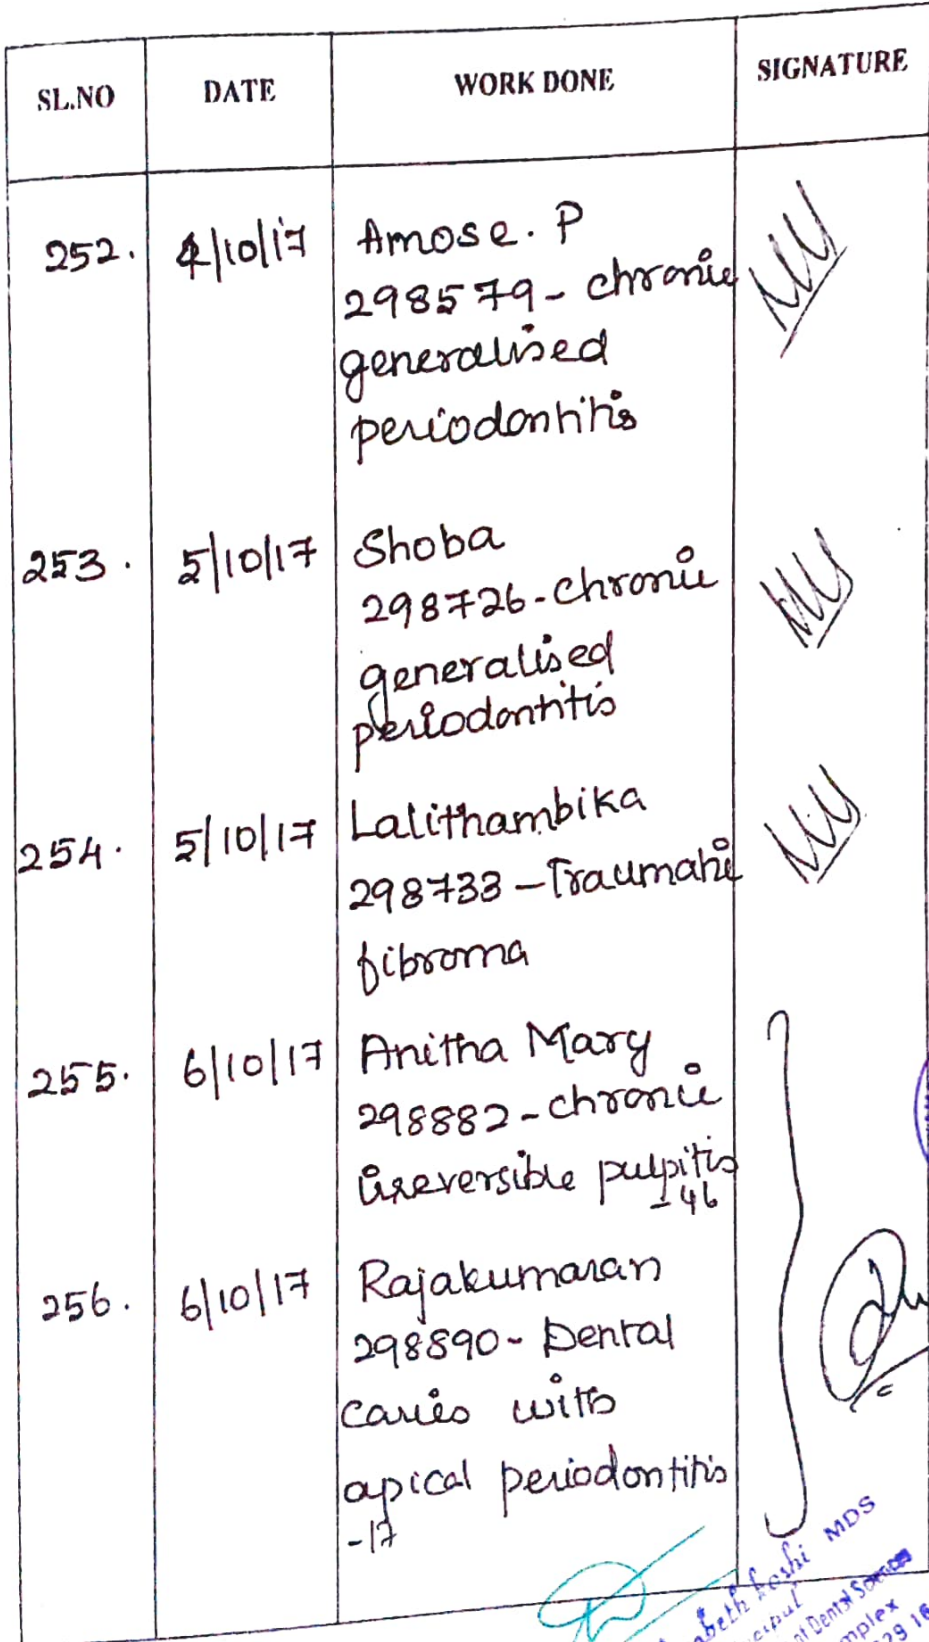 SL.NO DATE WORK DONE SIGNATURE
252. 4/10/17 Amose. P
298579- chronic
generalised
periodontitis
253. 5/10/17 Shoba
298726-chronic
generalised
periodontitis
254. 5/10/17 Lalithambika
298733-Traumatic
fibroma
255. 6/10/17 Anitha Mary
298882-chronic
irreversible pulpitis
-46
256. 6/10/17 Rajakumaran
298890- Dental
caries with
apical periodontitis
-17
MDS
Dental Sciences